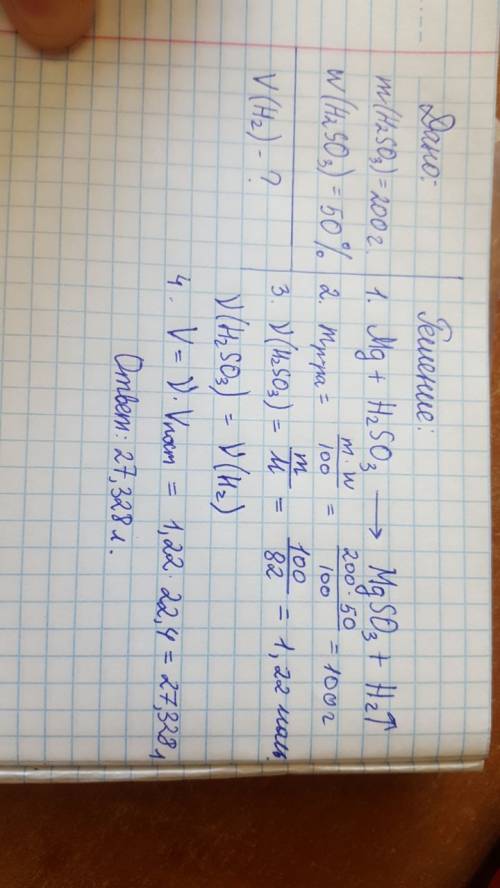 Дано:
m(H₂SO₃) = 200 г.
w(H₂SO₃) = 50%
V(H₂) - ?
Решение:
1. Mg + H₂SO₃ ⟶ MgSO₃ + H₂↑
2. mр.в.а = m·w/100 = 200·50/100 = 100 г
3. ν(H₂SO₃) = m/M = 100/82 = 1,22 моль
ν(H₂SO₃) = ν(H₂)
4. V = ν·Vпот = 1,22·22,4 = 27,328 л
Ответ: 27,328 л.